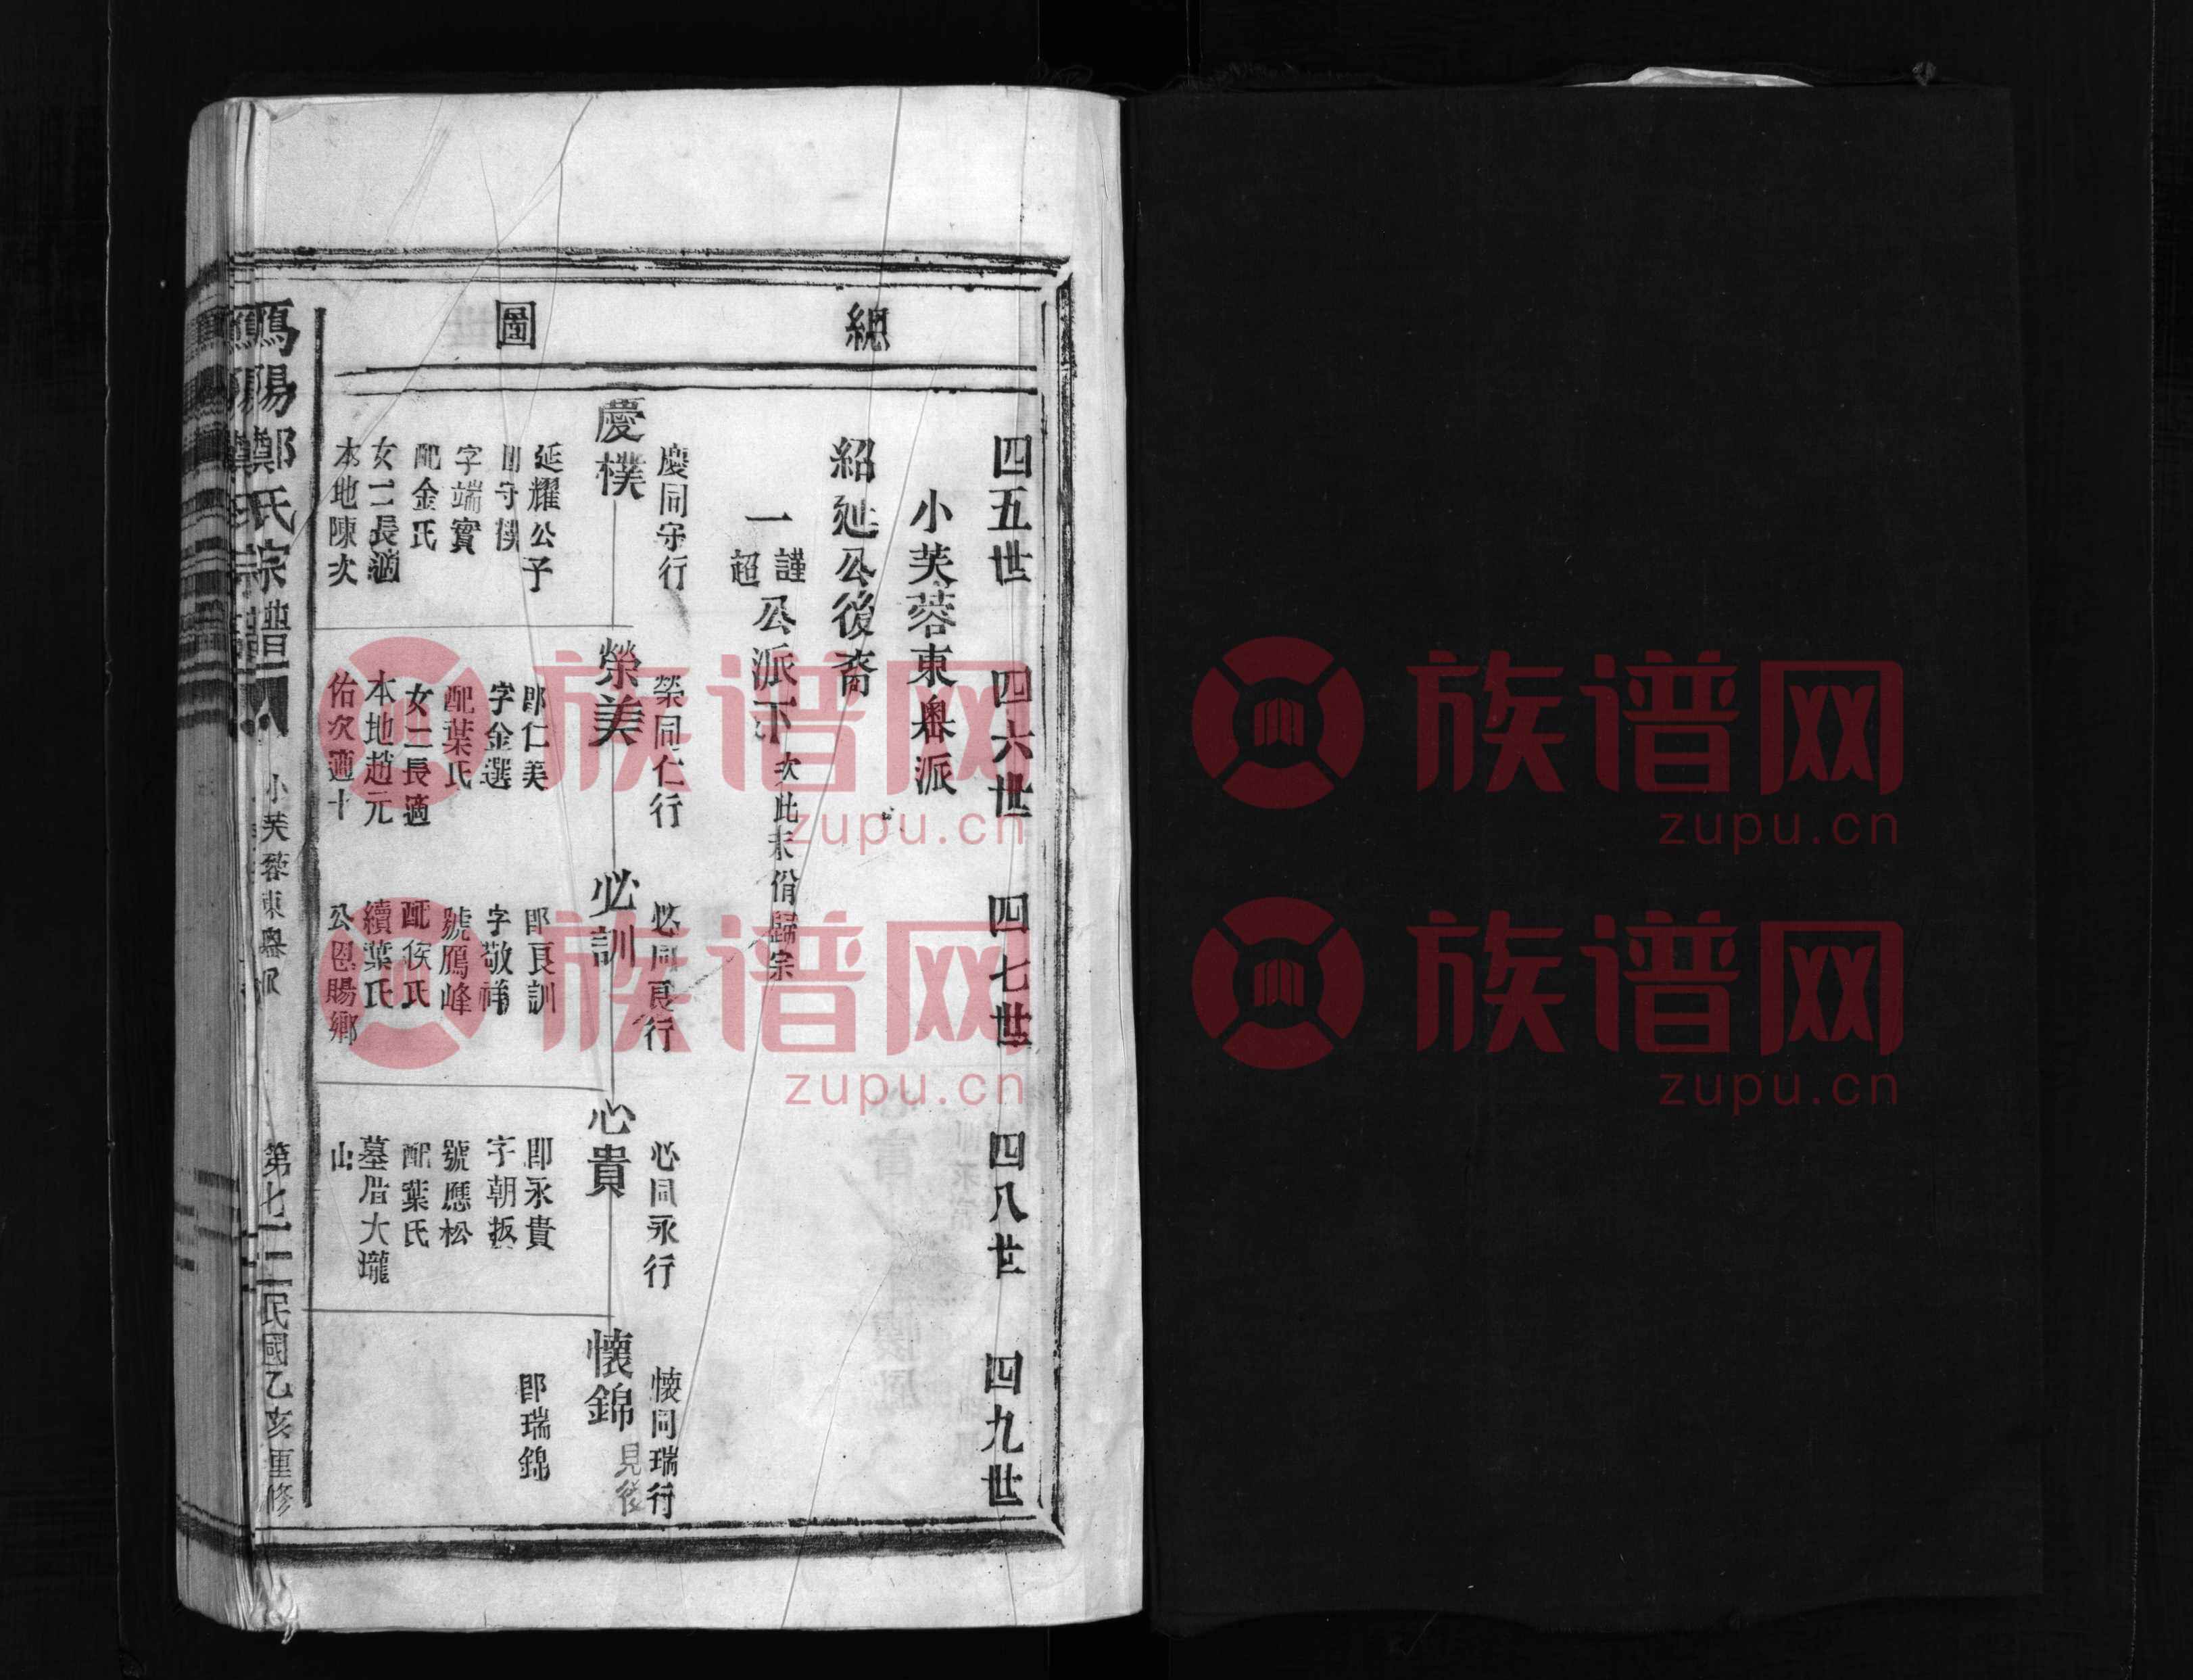 總圖
四五世 四六世 四七世 四八世 四九世
小芙蓉東粤派
紹延公後裔
一謹超公派下 次此未偹歸宗
慶同守行
慶樸
延耀公子
即守樸
字端實
配金氏
女二長適
本地陳次
榮同仁行
榮美
即仁美
字金選
配葉氏
女二長適
本地趙元
佑次適十
必同良行
必訓
即良訓
字敬祥
號鴈峰
配侯氏
續葉氏
公恩賜鄉
心同永行
心貴
即永貴
字朝扳
號應松
配葉氏
墓厝大瓏
山
懷同瑞行
懷錦 見後
即瑞錦
鴈陽鄭氏宗譜 小芙蓉東粤派 第七 民國乙亥重修
族谱网
zupu.cn
族谱网
zupu.cn
族谱网
zupu.cn
族谱网
zupu.cn